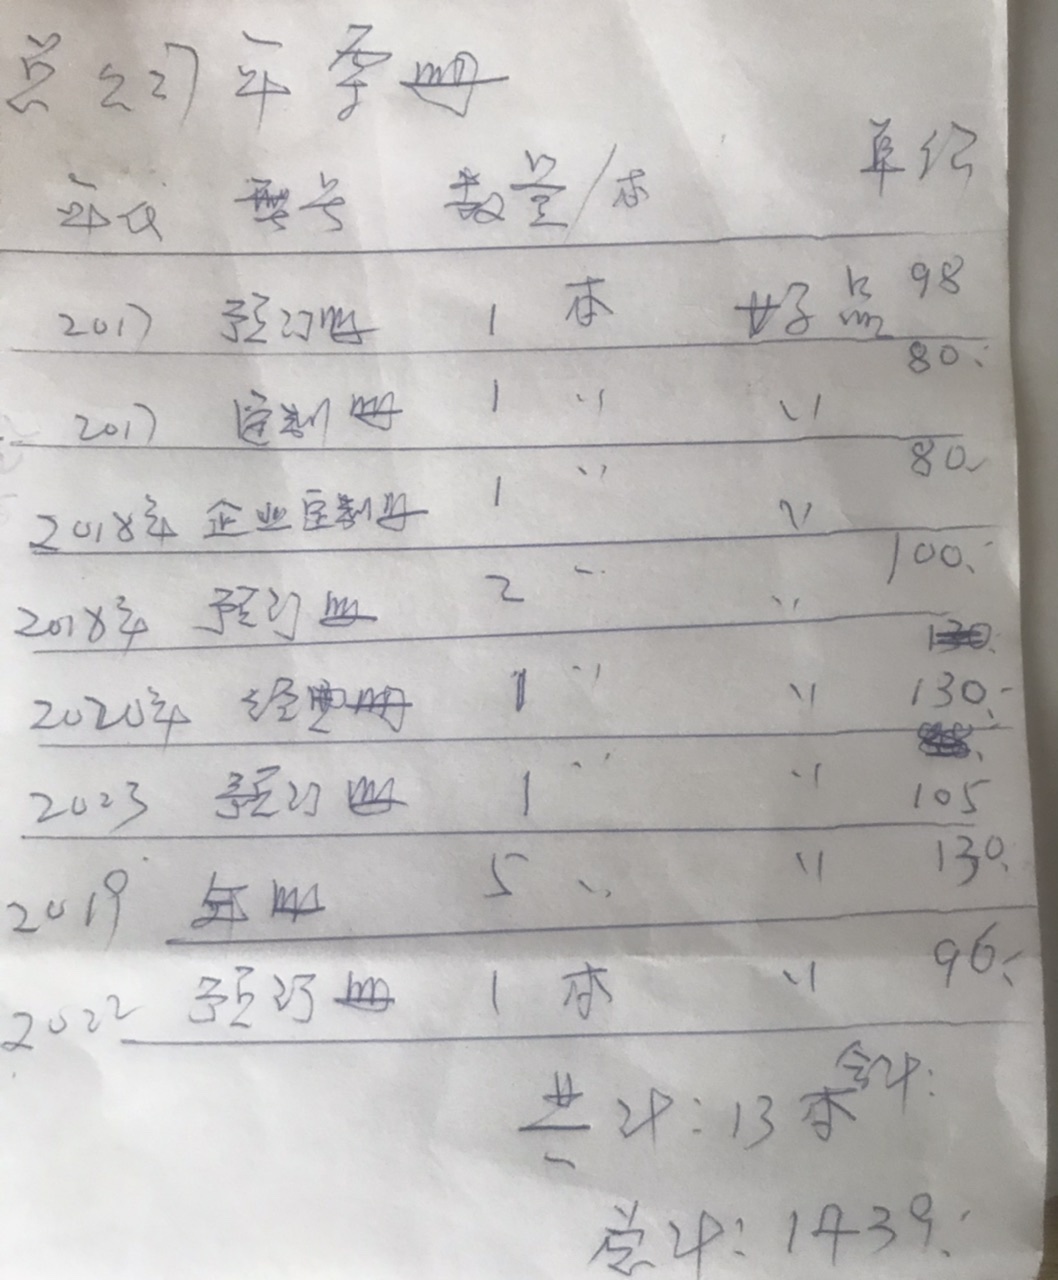 总公司年季册
年代 型号 数量/本 单价
2017 预订册 1 本 好品 98
2017 定制册 1 〃 〃 80.
2018年 企业定制册 1 〃 〃 80
2018年 预订册 2 〃 〃 100.
2020年 经典册 1 〃 〃 130.
2023 预订册 1 〃 〃 105
2019 年册 5 〃 〃 130.
2022 预订册 1 本 〃 96.
共计:13本 合计:
总计:1439.